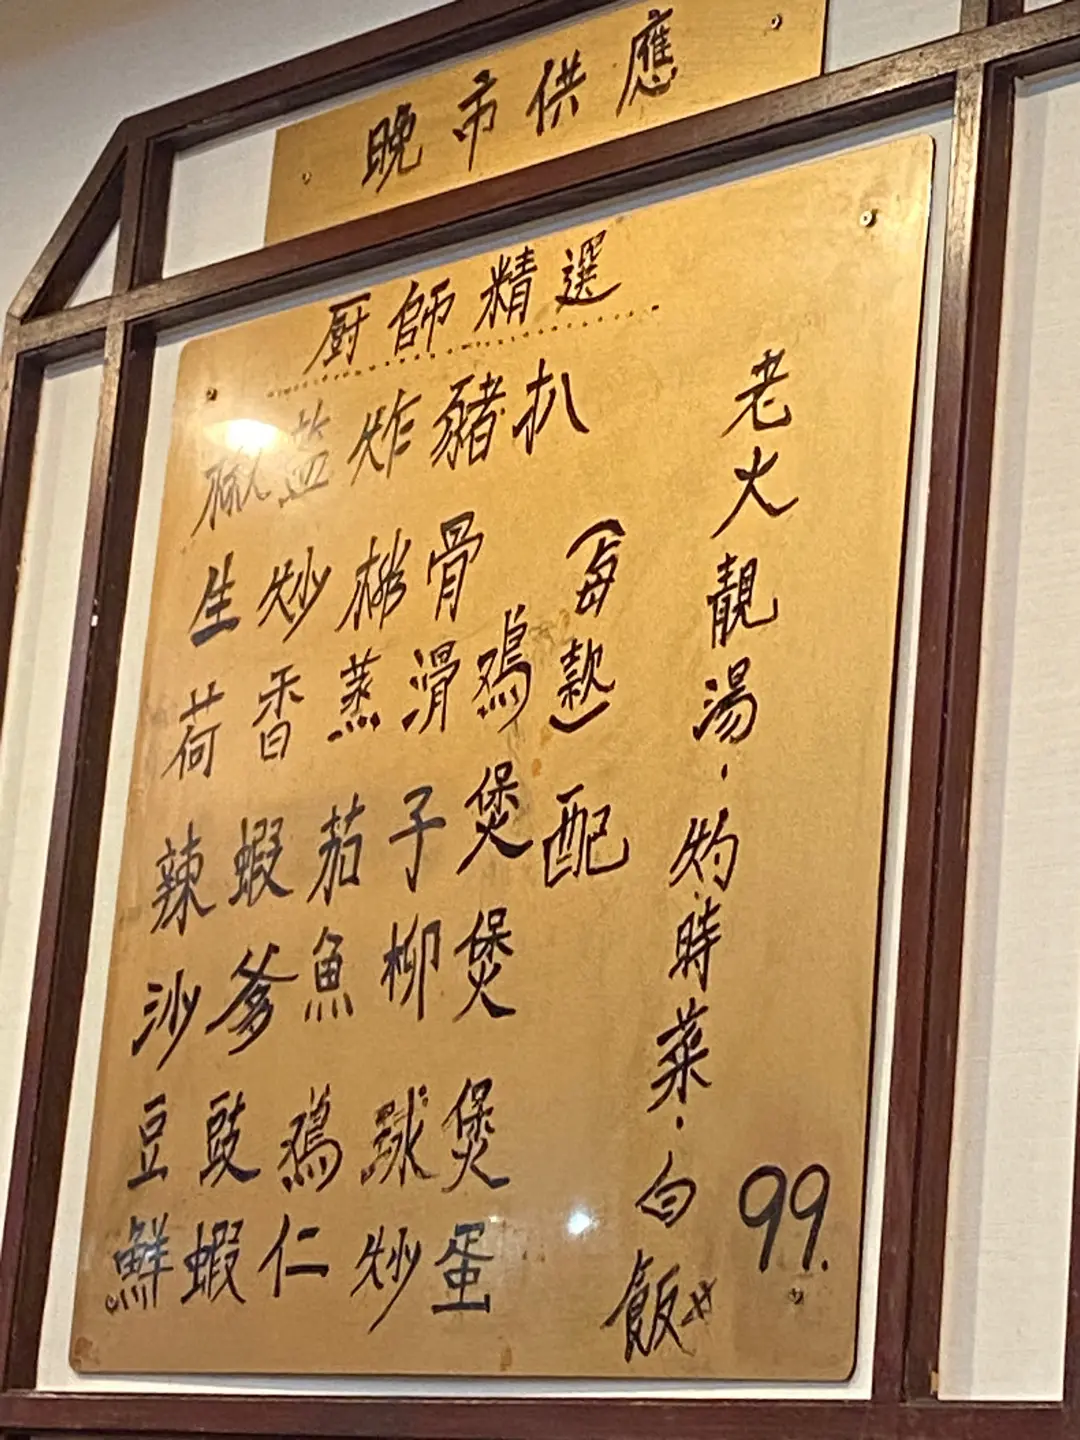 晚市供應
厨師精選
椒盐炸豬扒
生炒排骨
荷香蒸滑鸡
辣蝦茄子煲
沙爹魚柳煲
豆豉鸡球煲
鮮蝦仁炒蛋
(每款)配
老火靚湯·灼時菜·白飯
99.